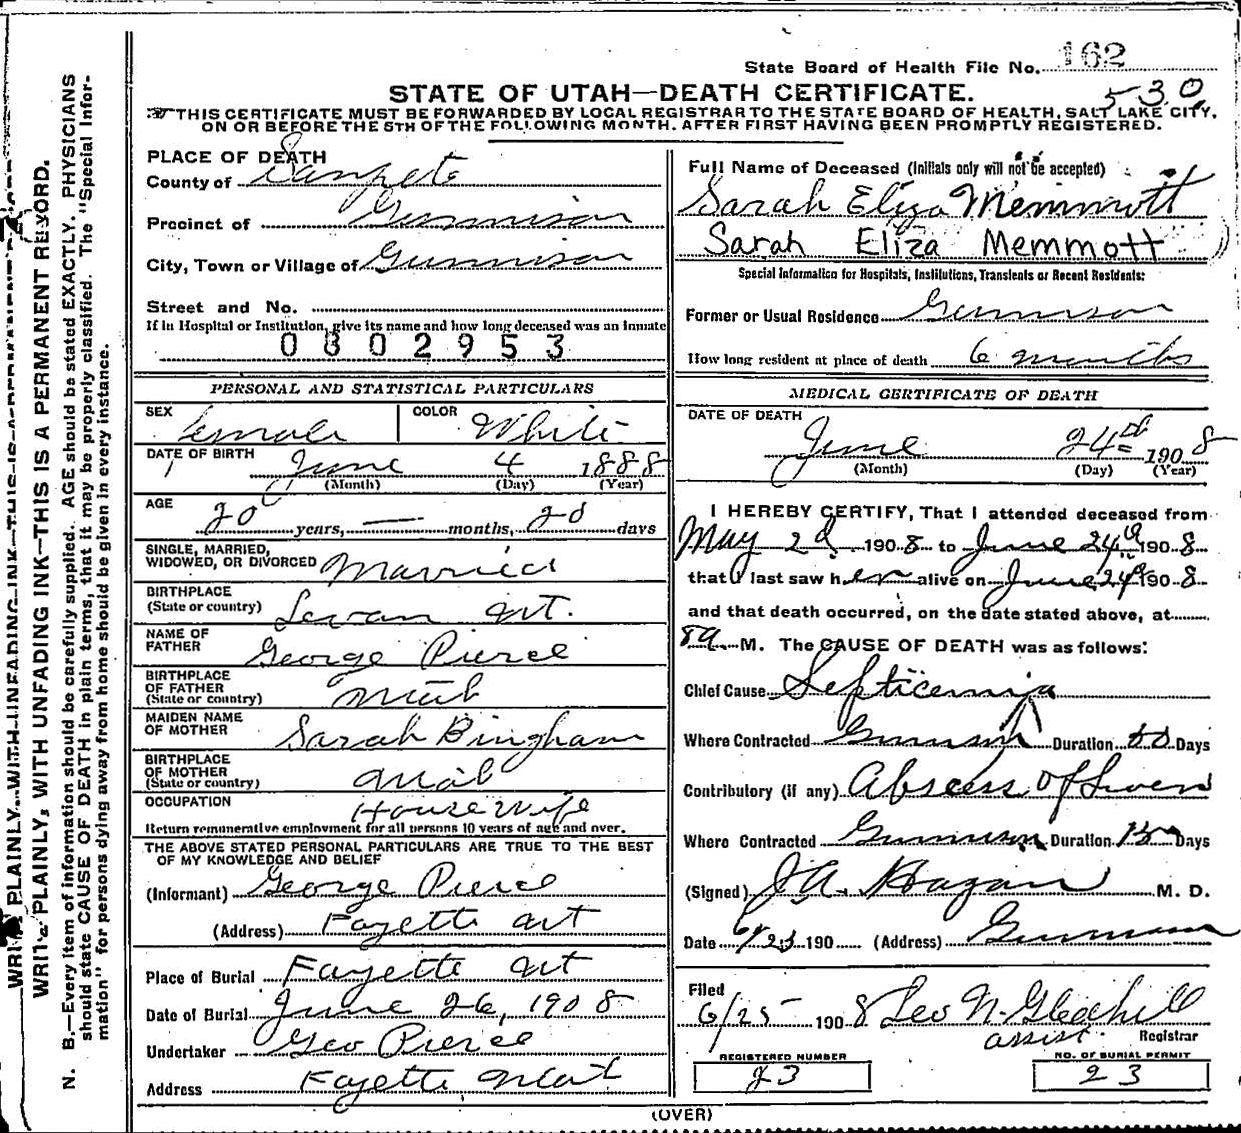 State Board of Health File No. 162
530
STATE OF UTAH—DEATH CERTIFICATE.
THIS CERTIFICATE MUST BE FORWARDED BY LOCAL REGISTRAR TO THE STATE BOARD OF HEALTH, SALT LAKE CITY,
ON OR BEFORE THE 5TH OF THE FOLLOWING MONTH. AFTER FIRST HAVING BEEN PROMPTLY REGISTERED.
PLACE OF DEATH
County of Sanpete
Precinct of Gunnison
City, Town or Village of Gunnison
Street and No.
If in Hospital or Institution, give its name and how long deceased was an inmate
0802953
PERSONAL AND STATISTICAL PARTICULARS
SEX Female COLOR White
DATE OF BIRTH June 4 1888
(Month) (Day) (Year)
AGE 20 years, — months, 20 days
SINGLE, MARRIED,
WIDOWED, OR DIVORCED Married
BIRTHPLACE
(State or country) Levan Ut.
NAME OF
FATHER George Pierce
BIRTHPLACE
OF FATHER
(State or country) Utah
MAIDEN NAME
OF MOTHER Sarah Bingham
BIRTHPLACE
OF MOTHER
(State or country) Utah
OCCUPATION House Wife
Return remunerative employment for all persons 10 years of age and over.
THE ABOVE STATED PERSONAL PARTICULARS ARE TRUE TO THE BEST
OF MY KNOWLEDGE AND BELIEF
(Informant) George Pierce
(Address) Fayette Ut
Place of Burial Fayette Ut
Date of Burial June 26, 1908
Undertaker Geo Pierce
Address Fayette Utah
Full Name of Deceased (Initials only will not be accepted)
Sarah Eliza Memmott
Sarah Eliza Memmott
Special Information for Hospitals, Institutions, Transients or Recent Residents:
Former or Usual Residence Gunnison
How long resident at place of death 6 months
MEDICAL CERTIFICATE OF DEATH
DATE OF DEATH
June 24th 1908
(Month) (Day) (Year)
I HEREBY CERTIFY, That I attended deceased from
May 2d 1908 to June 24th 1908
that I last saw her alive on June 24th 1908
and that death occurred, on the date stated above, at
8 a. M. The CAUSE OF DEATH was as follows:
Chief Cause Septicemia
Where Contracted Gunnison Duration Days
Contributory (if any) Abscess of Liver
Where Contracted Gunnison Duration Days
(Signed) J A. Hagan M. D.
Date 190 (Address) Gunnison
Filed
6/25 1908 Leo N. Gledhill
assist. Registrar
REGISTERED NUMBER
23
NO. OF BURIAL PERMIT
23
(OVER)
WRITE PLAINLY, WITH UNFADING INK—THIS IS A PERMANENT RECORD.
WRITE PLAINLY, WITH UNFADING INK—THIS IS A PERMANENT RECORD.
N. B.—Every item of information should be carefully supplied. AGE should be stated EXACTLY. PHYSICIANS
should state CAUSE OF DEATH in plain terms, that it may be properly classified. The "Special Infor-
mation" for persons dying away from home should be given in every instance.